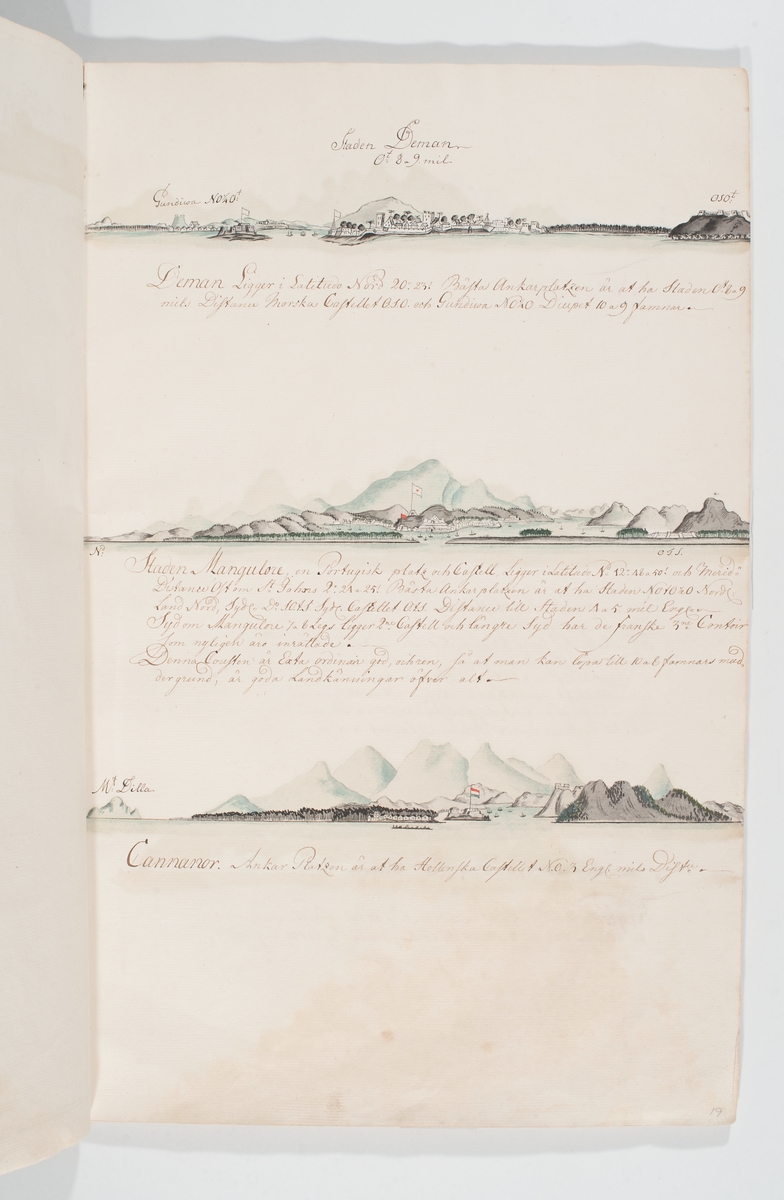 Staden Deman
Ot 8 a 9 mil
Gundiwa NOtO OSOt
Deman Ligger i Latitudo Nord 20: 23: Bästa Ankarplatzen är at ha Staden Ot 8 a 9
mils Distance Morska Castellet OSO. och Gundiwa NOtO Diupet 10 a 9 famnar.
No OtS.
Staden Mangulore, en Portugisk platz och Castell, Ligger i Latitudo No 12: och Merid:
Distance Ost om St Johns 2: 24 a 25: Bästa Ankarplatzen är at ha Staden Nordl:
Land Nord, Sydl: Do Sydl: Castellet OtS Distance till Staden 4 a 5 mil Engl:
Syd om Mangulore Legs ligger 2ne Castell och längre Syd har de franske 3ne Contoir
som nyligen äro inrättade.
Denna Cousten är Exta ordinair god, och ren, så at man kan löpa till 10 a 6 famnars mud,
dergrund, är goda Landkänningar öfver alt
Mt Dilla
Cannanor. Ankar Platzen är at ha Hollenska Castellet N.O. 3 Engl mils Dist:
19